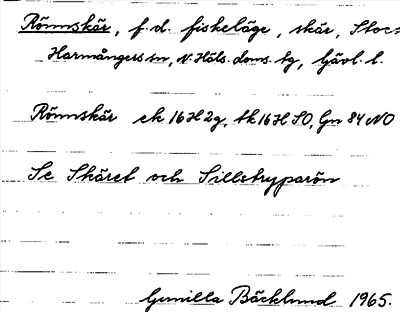 Rönnskär, f.d. fiskeläge, skär, Stocs
Harmångers sn, N. Häls. doms. tg, Gävl. l.
Rönnskär ek 16H2g, tk 16H SO, Gn 84 NO
Se Skäret och Sillstryparön
Gunilla Bäcklund 1965.